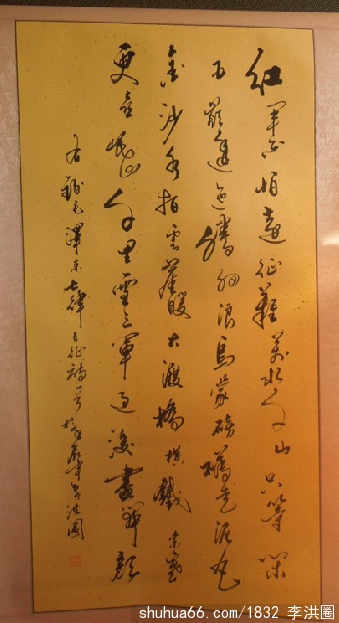 红軍不怕遠征難萬水千山只等闲
五嶺逶迤腾细浪烏蒙磅礴走泥丸
金沙水拍雲崖暖大渡橋横鐵索寒
更喜岷山千里雪三軍过後盡開颜
右錄毛澤東七律長征詩一首 李洪圈
shuhua66.com/1832 李洪圈